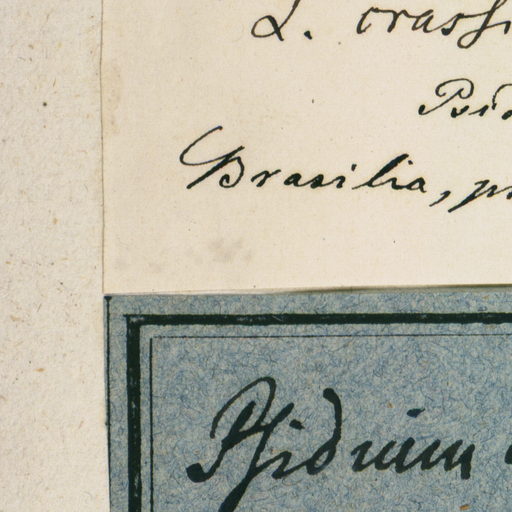 L. crassi
Psid
Brasilia, pr
Psidium